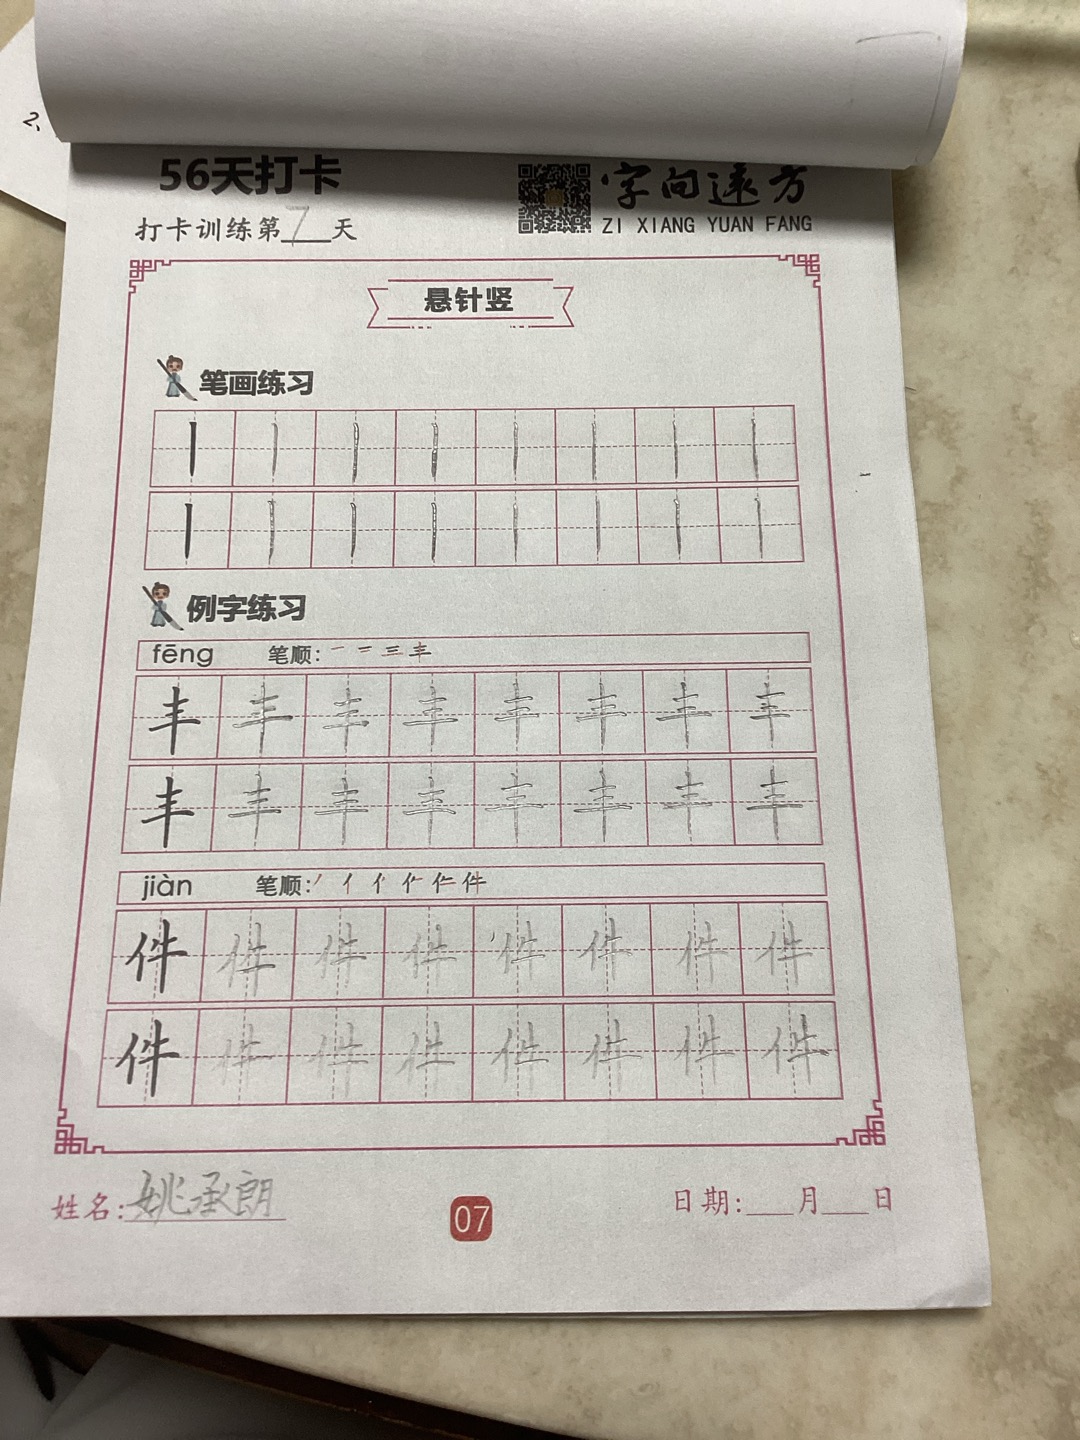 2、
56天打卡
字向远方
打卡训练第7天
ZI XIANG YUAN FANG
悬针竖
笔画练习
丨丨丨丨丨丨丨丨
丨丨丨丨丨丨丨丨
例字练习
fēng 笔顺: 一 二 三 丰
丰丰丰丰丰丰丰丰
丰丰丰丰丰丰丰丰
jiàn 笔顺: 丿 亻 件
件件件件件件件件
件件件件件件件件
姓名:姚承朗
07
日期:___月___日